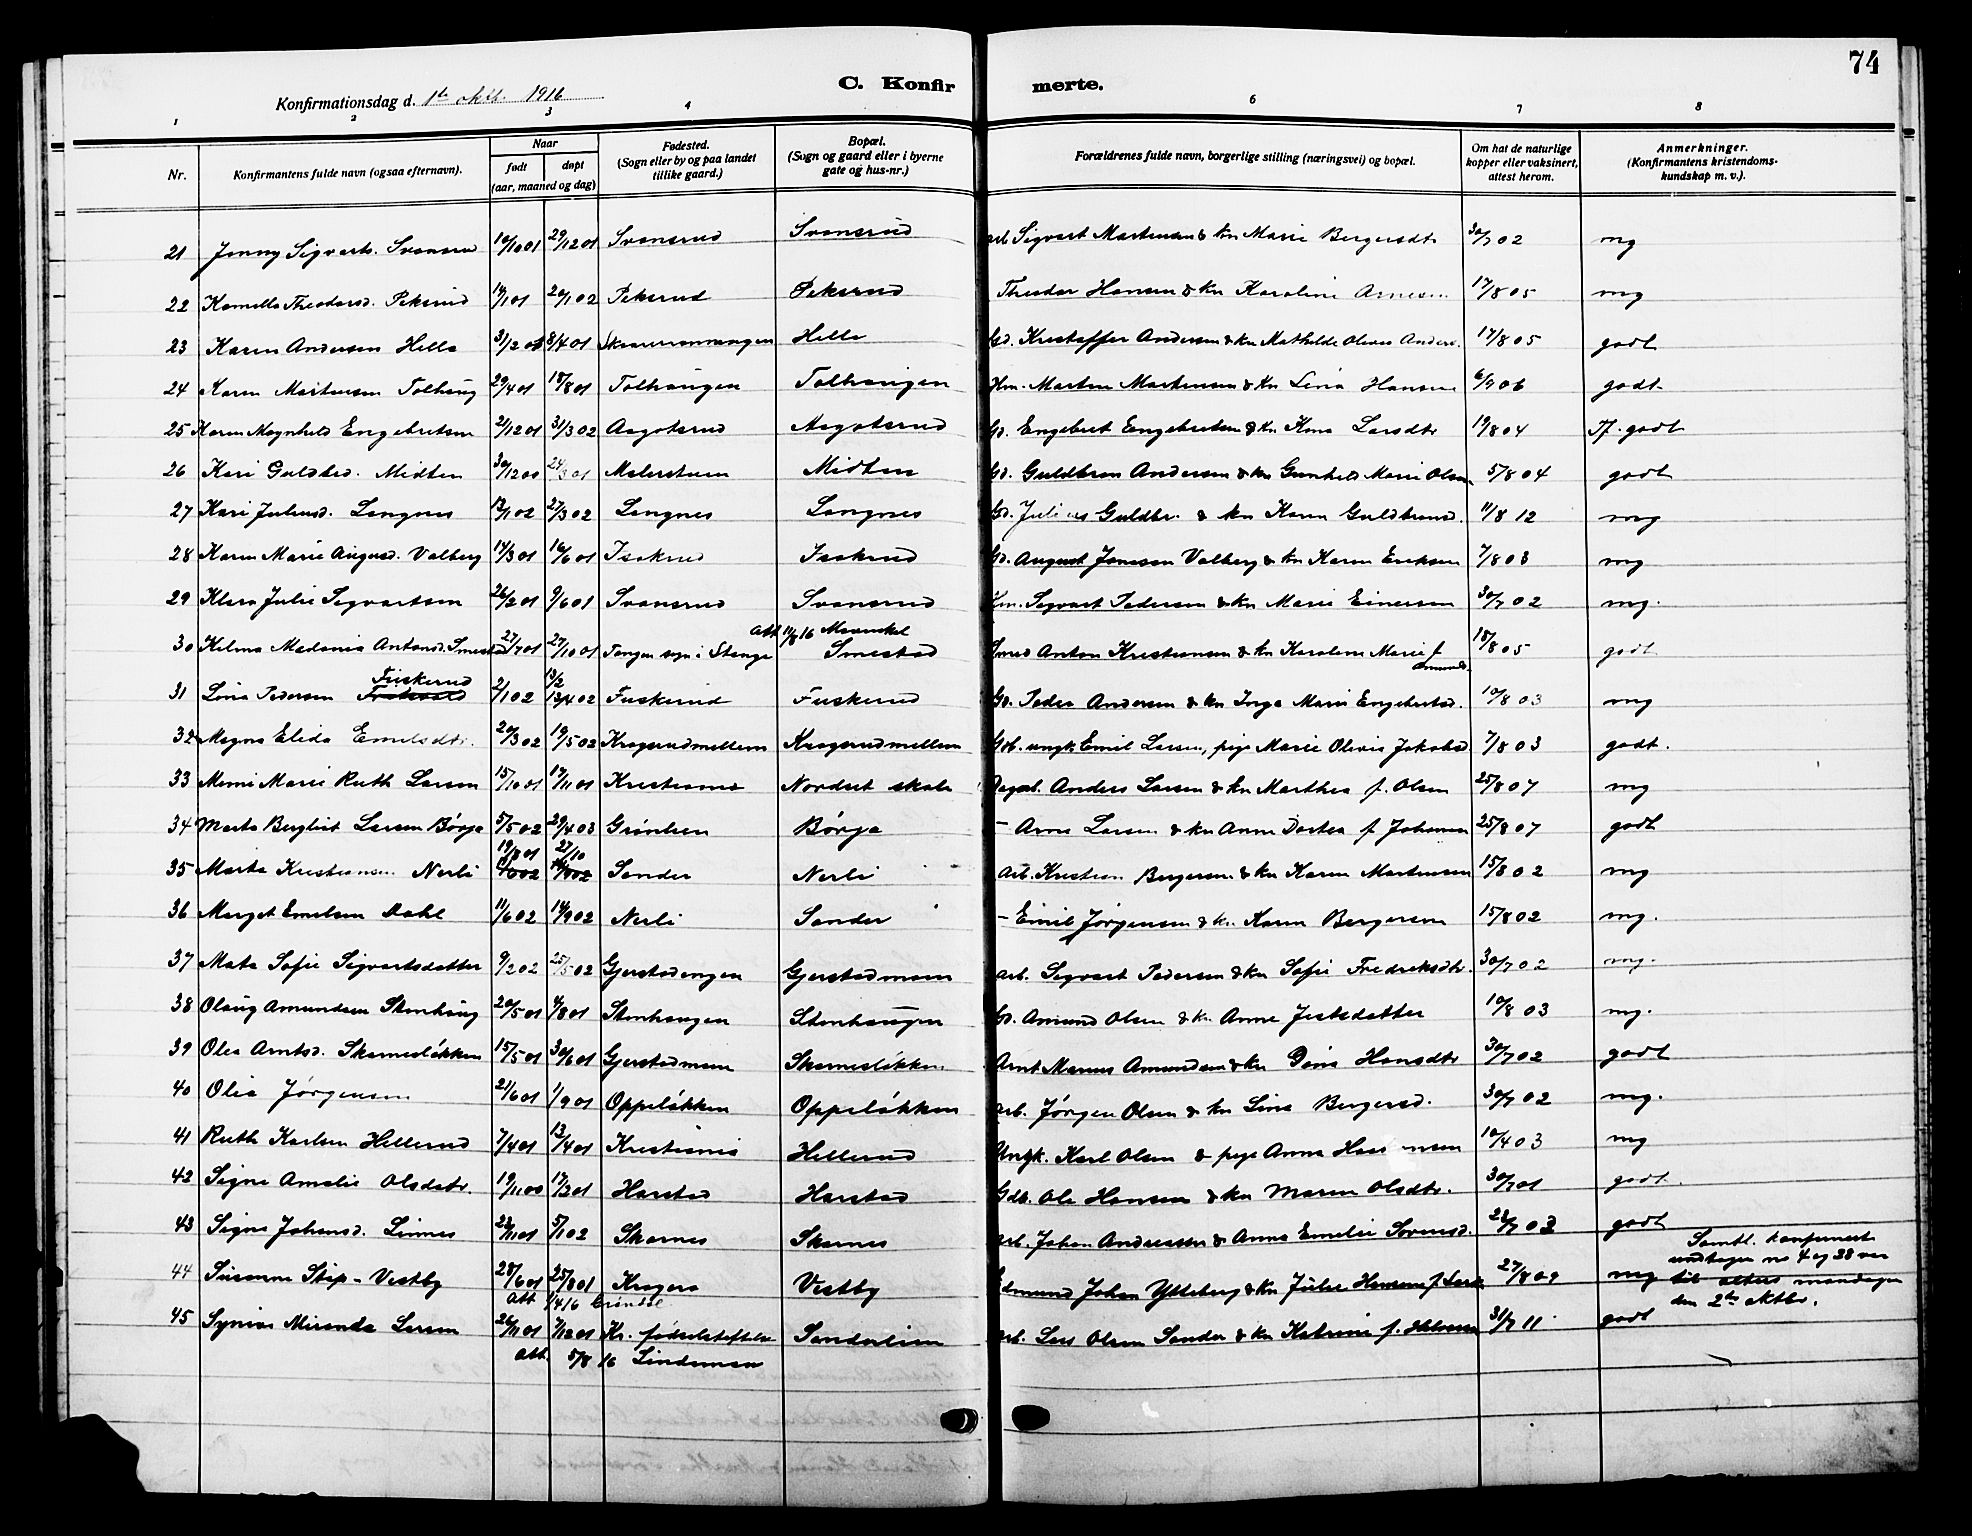 74
C. Konfirmerte.
Konfirmationsdag d. 1ste oktb. 1916
1 2 3 4 6 7 8
Nr. Konfirmantens fulde navn (ogsaa efternavn). Naar født døpt (aar, maaned og dag) Fødested. (Sogn eller by og paa landet tillike gaard.) Bopæl. (Sogn og gaard eller i byerne gate og hus-nr.) Forældrenes fulde navn, borgerlige stilling (næringsvei) og bopæl. Om hat de naturlige kopper eller vaksinert, attest herom. Anmerkninger. (Konfirmantens kristendoms-kundskap m. v.).
21 Jenny Sigvarts. Svensrud 10/10 01 29/12 01 Svensrud Svensrud arb. Sigvart Martinsen & kn Marie Bergersdtr 30/7 02 mg
22 Kamilla Theodorsd. Peksrud 14/1 01 20/1 02 Peksrud Peksrud Theodor Hansen & kn Karoline 17/8 05 mg
23 Karen Andersen Helle 31/2 01 8/4 01 Helle Gd. Kristoffer Andersen & kn Mathilde Olivia Anders. 17/8 05 godt
24 Karen Martinsen Tolhaug 29/4 01 18/8 01 Tolhaugen Tolhaugen Hm. Martin Martinsen & kn Lina Hansen 6/9 06 godt
25 Karen Magnhild Engebretsen 21/12 01 31/3 02 Aagotsrud Aagotsrud Gd. Engebret Engebretsen & kn Kaia Larsdtr 19/8 04 Tf. godt
26 Kari Guldbrd. Midtun 30/12 00 24/3 01 Malerstuen Midtun Gd. Guldbran Andersen & kn Gunhild Marie Olsen 5/8 04 godt
27 Kari Juliusd. Langnes 12/1 02 27/3 02 Langnes Langnes Gd. Julius Guldbr. & kn Karen Guldbrand. 11/8 12 mg
28 Karen Marie Augusd. Valberg 14/3 01 16/6 01 Isakrud Isakrud Gd. August Jonassen Valberg & kn Karen Eriksen 7/8 03 mg
29 Klara Julie Sigvartsen 26/2 01 9/6 01 Svensrud Svensrud Hm. Sigvart Pedersen & kn Marie Einersen 30/7 02 mg.
30 Helma Madonia Antonsd. Smestad 27/7 01 27/10 01 Tangen sogn i Stange Att. 11/8 16 Smestad Smed Anton Kristiansen & kn Karoline Marie f. Amunds. 18/8 05 godt
31 Lina Pedersen Fuskerud 2/1 02 13/2 13/4 02 Fuskerud Fuskerud Gd. Peder Andersen & kn Inga Marie Engebretsd. 10/8 03 mg
32 Magna Elida Emilsdtr. 20/3 02 19/5 02 Kragerudmellem Kragerudmellem Gdb. ungk. Emil Larsen, pige Marie Olivia Jakobsd 7/8 03 godt.
33 Mimi Marie Ruth Larsen 15/10 01 17/11 01 Kristiania Nordset skole Dagarb. Anders Larsen & kn Marthea f. Olsen 25/8 07 mg
34 Marta Bergliot Larsen Børja 5/5 02 29/4 03 Grønlien Børja – Arne Larsen & kn Anne Dortea f. Johansen 25/8 07 godt
35 Marta Kristiansen Nerli 19/8 01 27/10 Sander Nerli arb. Kristian Bergersen & kn Karen Martinsen 15/8 02 mg
36 Margit Emilsen Dahl 11/6 02 14/9 02 Nerli Sander – Emil Jørgensen & kn. Karen Bergersen 15/8 02 mg.
37 Mata Sofie Sigvartsdatter 9/2 02 25/5 02 Gjerstadengen Gjerstadmoen arb. Sigvart Pedersen & kn Sofie Fredriksdtr. 30/7 02 mg.
38 Olaug Amundsen Stenhaug 20/5 01 4/8 01 Stenhaugen Stenhaugen Gd. Amund Olsen & kn. Anne Jestsdatter 10/8 03 mg.
39 Olea Arntsd. Skarnesløkken 15/5 01 30/6 01 Gjerstadmoen Skarnesløkken Arnt Marius Amundsen & kn Dina Hansdtr 30/7 02 godt
40 Olea Jørgensen 21/6 01 1/9 01 Oppeløkken Oppeløkken arb. Jørgen Olsen & kn Lina Bergersd. 30/7 02 mg.
41 Ruth Karlsen Hellerud 7/4 01 13/4 01 Kristiania Hellerud Ungk. Karl Olsen & pige Anna 10/4 03 mg
42 Signe Amalie Olsdatr. 19/11 00 17/2 01 Harstad Harstad Gdb. Ole Hansen & kn Maren Olsdtr. 30/7 01 godt.
43 Signe Johansd. Linnes 23/11 01 5/1 02 Skarnes Skarnes arb. Johan Andreassen & Anna Emelie Sørensd. 28/7 03 godt
44 Susanne Stip-Vestby 28/6 01 25/8 01 Kragerø Vestby Edmund Johan Ytteberg & kn Julie Hansine f. 27/8 09 mg
Att 1/4 16 Grøndal
Samtl. konfirmert
undtagen no 4 og 38 var
til alters mandagen
den 2den oktbr.
45 Synnøve Miranda Larsen 26/11 01 7/12 01 Kr. fødselstiftelse Sanderlien arb. Lars Olsen Sander & kn Katrine f. Halvorsen 31/7 11 godt
Att. 5/8 16 Lindeman